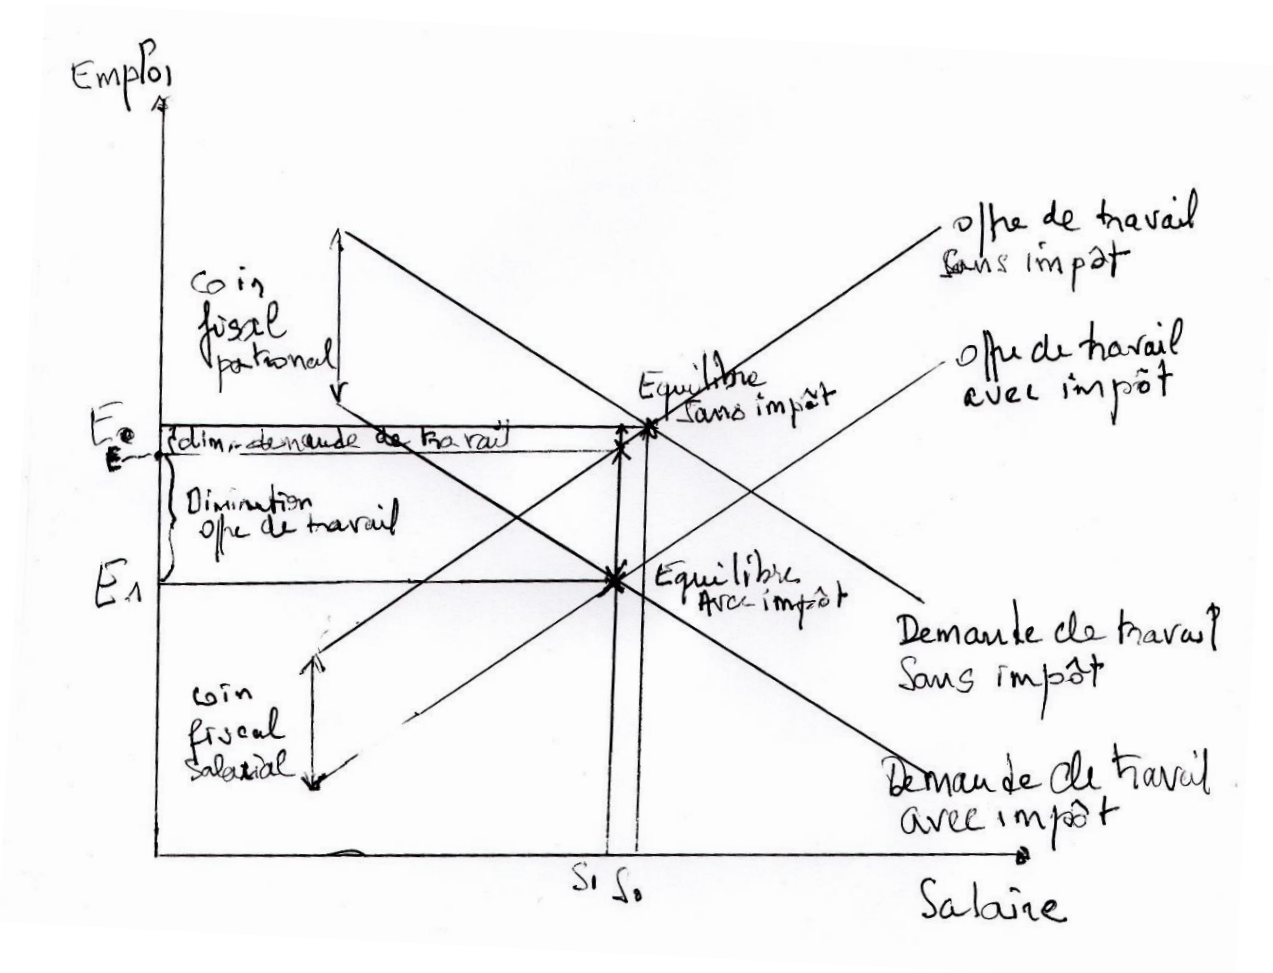 Emploi
offre de travail
sans impôt
Coin
fiscal
patronal
offre de travail
avec impôt
Equilibre
sans impôt
E0
dim. demande de travail
E
Diminution
offre de travail
E1
Equilibre
Avec impôt
Demande de travail
sans impôt
coin
fiscal
salarial
Demande de travail
avec impôt
S1 S0
Salaire